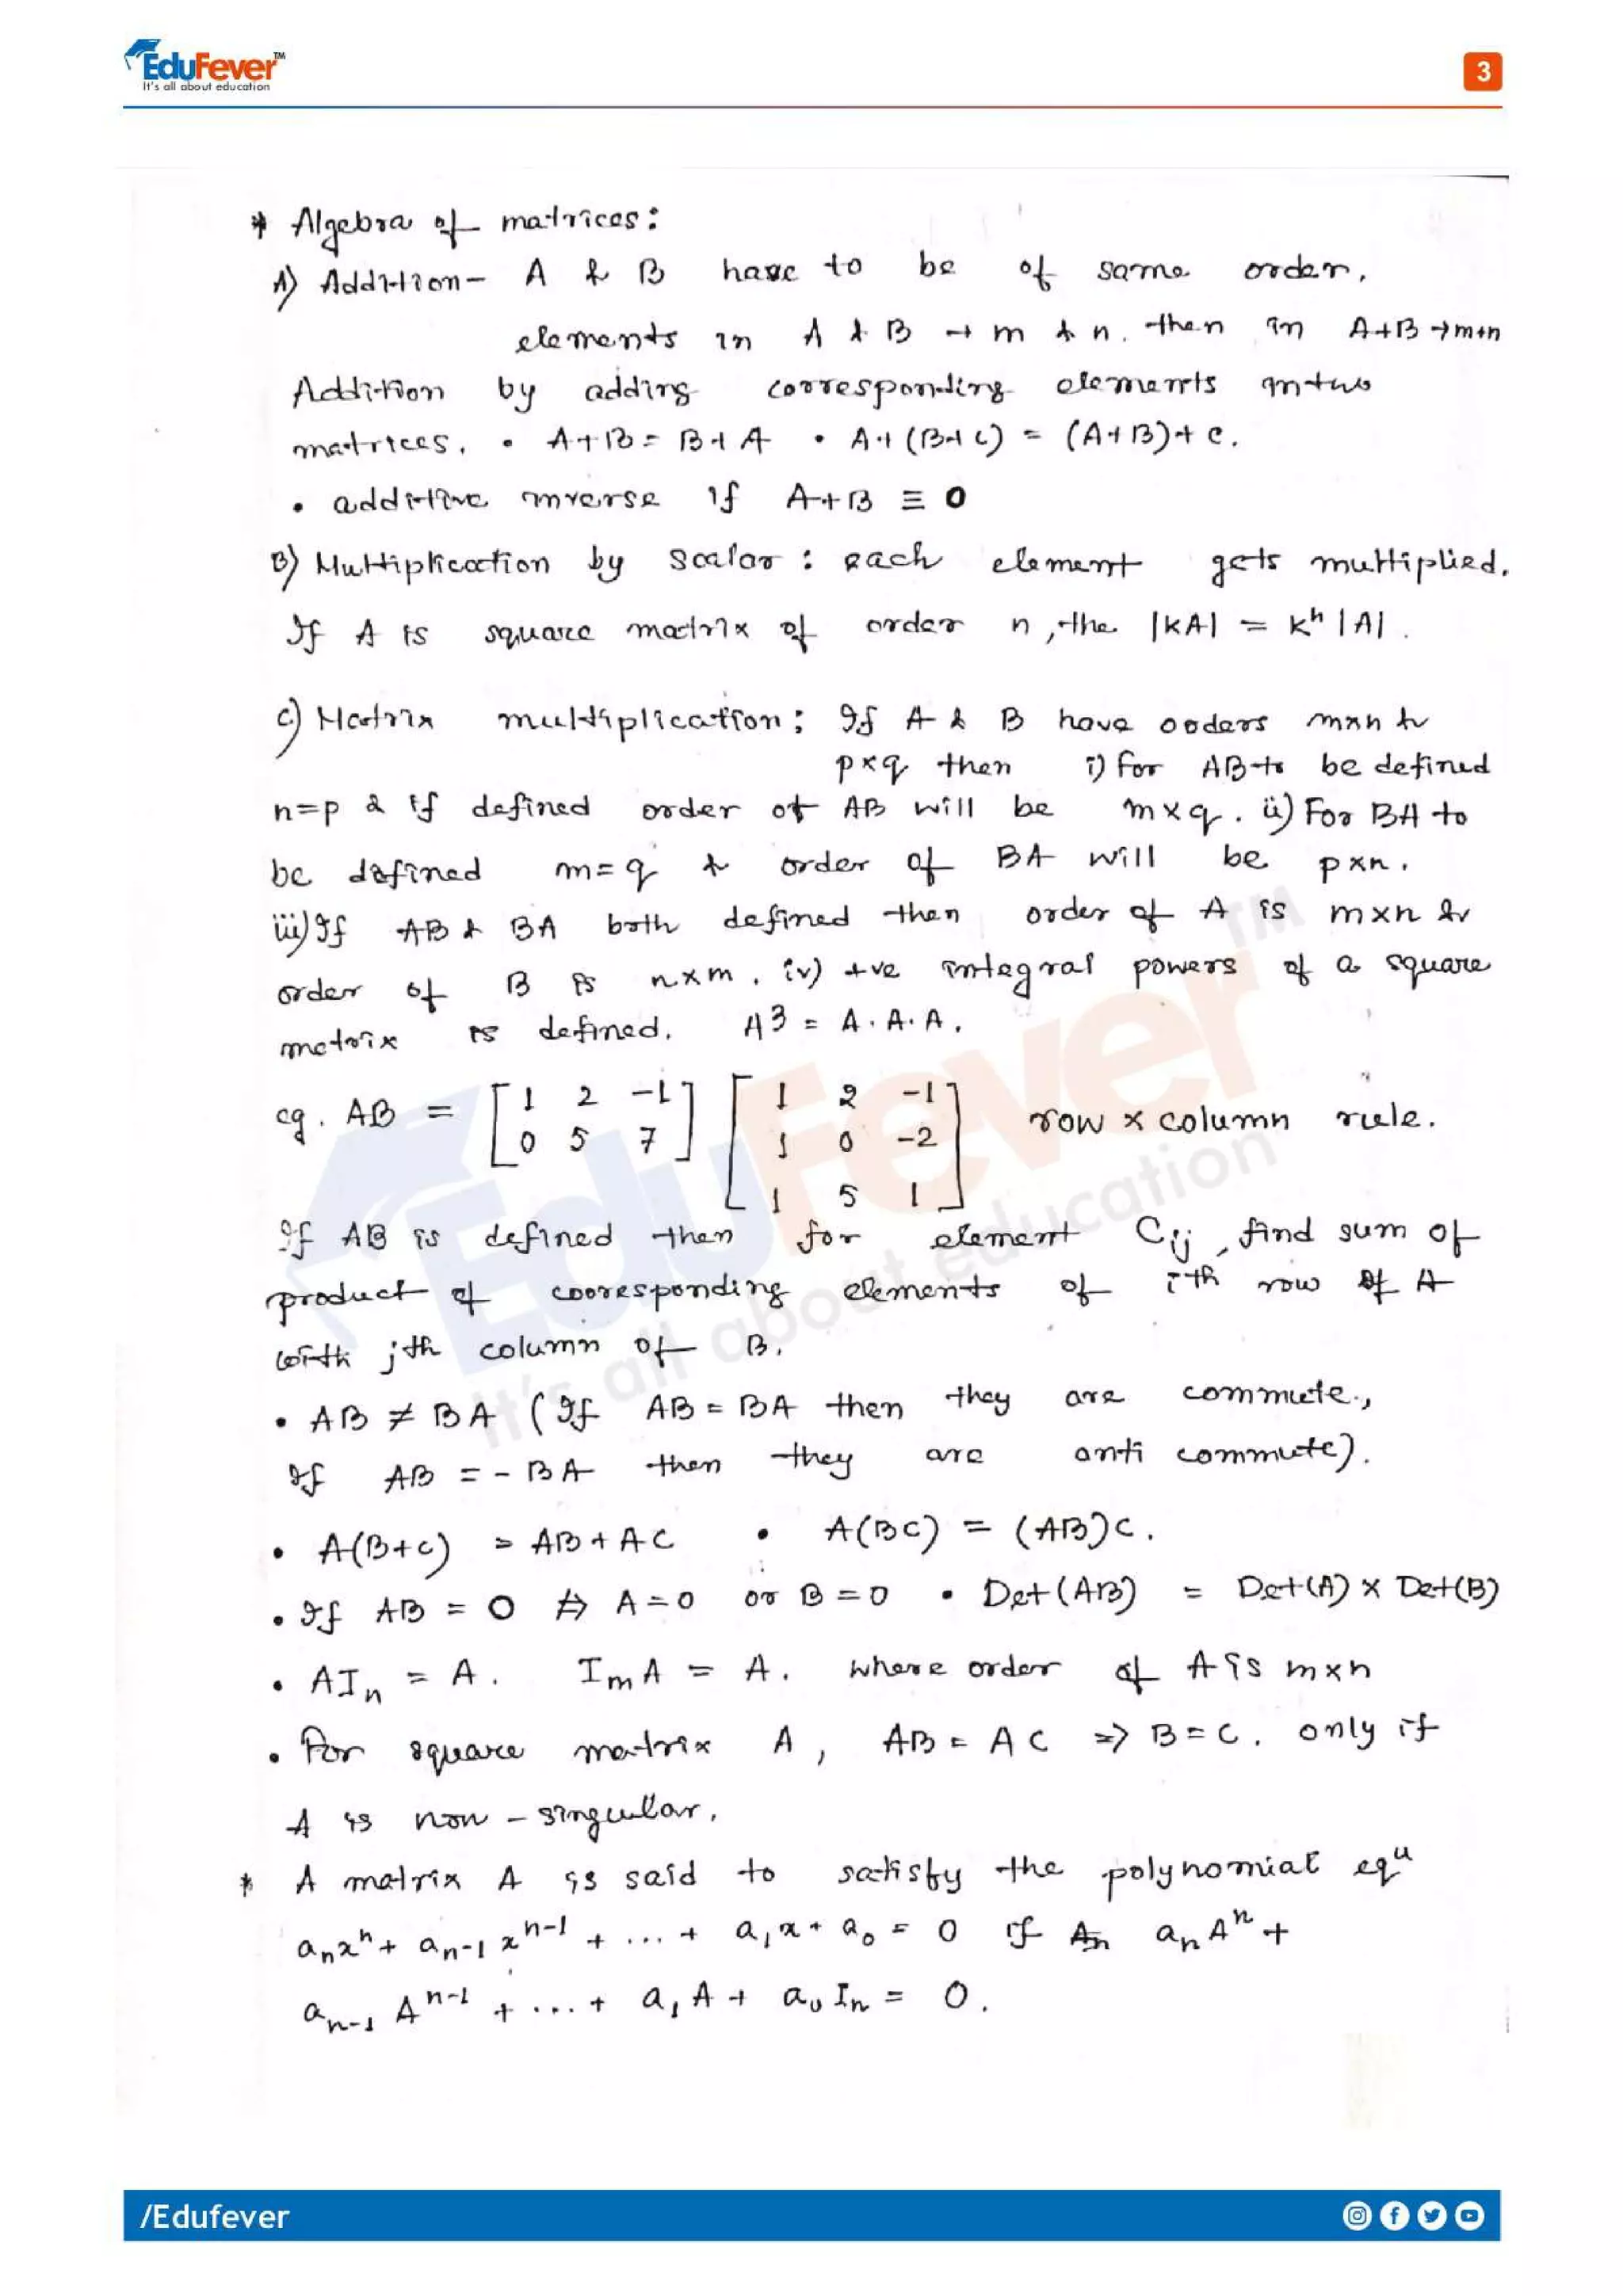 EduFever™
It's all about education
3
* Algebra of matrices:
A) Addition - A & B have to be of same order,
elements in A & B → m & n. then in A+B → m+n
Addition by adding corresponding elements in two
matrices. • A+B = B+A • A+(B+C) = (A+B)+C.
• additive inverse if A+B ≡ 0
B) Multiplication by scalar : each element gets multiplied.
If A is square matrix of order n, the |KA| = Kⁿ |A|.
C) Matrix multiplication; If A & B have orders m×n &
p×q then i) For AB to be defined
n=p & if defined order of AB will be m×q. ii) For BA to
be defined m=q & order of BA will be p×n.
iii) If AB & BA both defined then order of A is m×n &
order of B is n×m. iv) +ve integral powers of a square
matrix is defined. A³ = A.A.A.
eg. AB = [1 2 -1] [1 2 -1] row × column rule.
[0 5 7] [1 0 -2]
[1 5 1]
If AB is defined then for element Cij, find sum of
product of cooresponding elements of ith row of A
with jth column of B.
• AB ≠ BA (If AB = BA then they are commute.,
If AB = - BA then they are anti commute).
• A(B+C) = AB+AC • A(BC) = (AB)C.
• If AB = 0 ⇏ A=0 or B=0 • Det(AB) = Det(A) × Det(B)
• AIn = A. ImA = A. where order of A is m×n
• For square matrix A, AB = AC ⇒ B=C. only if
A is non-singular.
* A matrix A is said to satisfy the polynomial equ
aₙxⁿ + aₙ₋₁xⁿ⁻¹ + ... + a₁x + a₀ = 0 if aₙAⁿ +
aₙ₋₁Aⁿ⁻¹ + ... + a₁A + a₀Iₙ = 0.
/Edufever